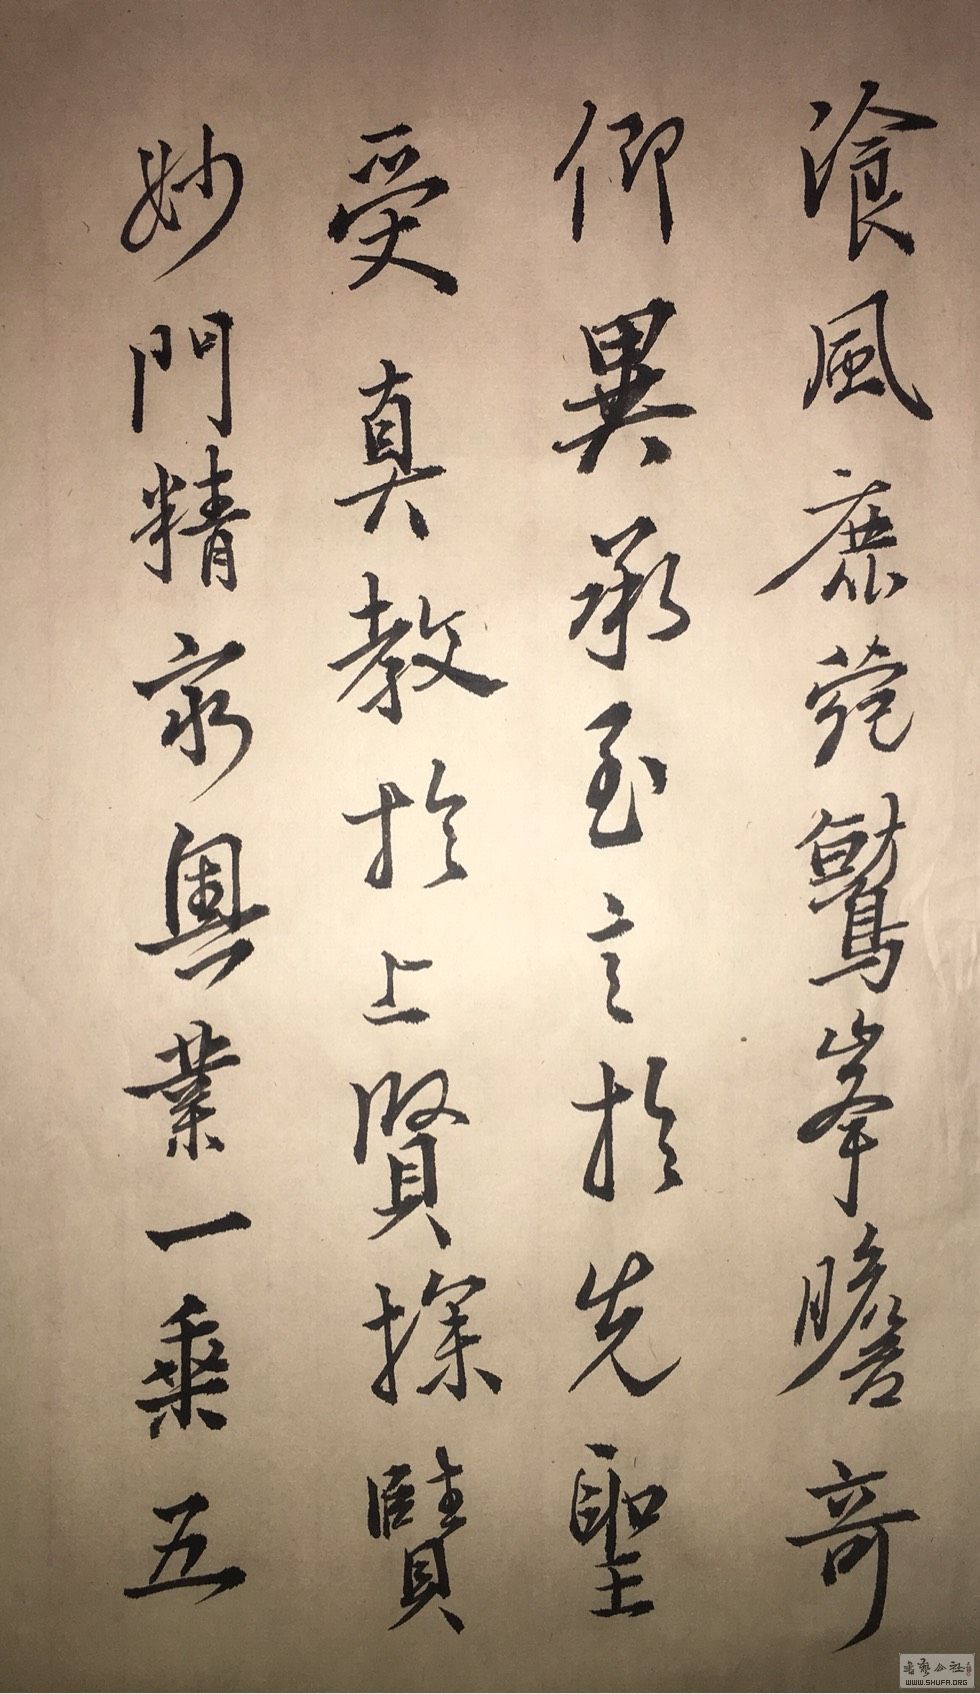 飡風鹿菀鷲峯瞻奇
仰異承至言於先聖
受真教於上賢探賾
妙門精窮奥業一乗五
書藝公社
WWW.SHUFA.ORG